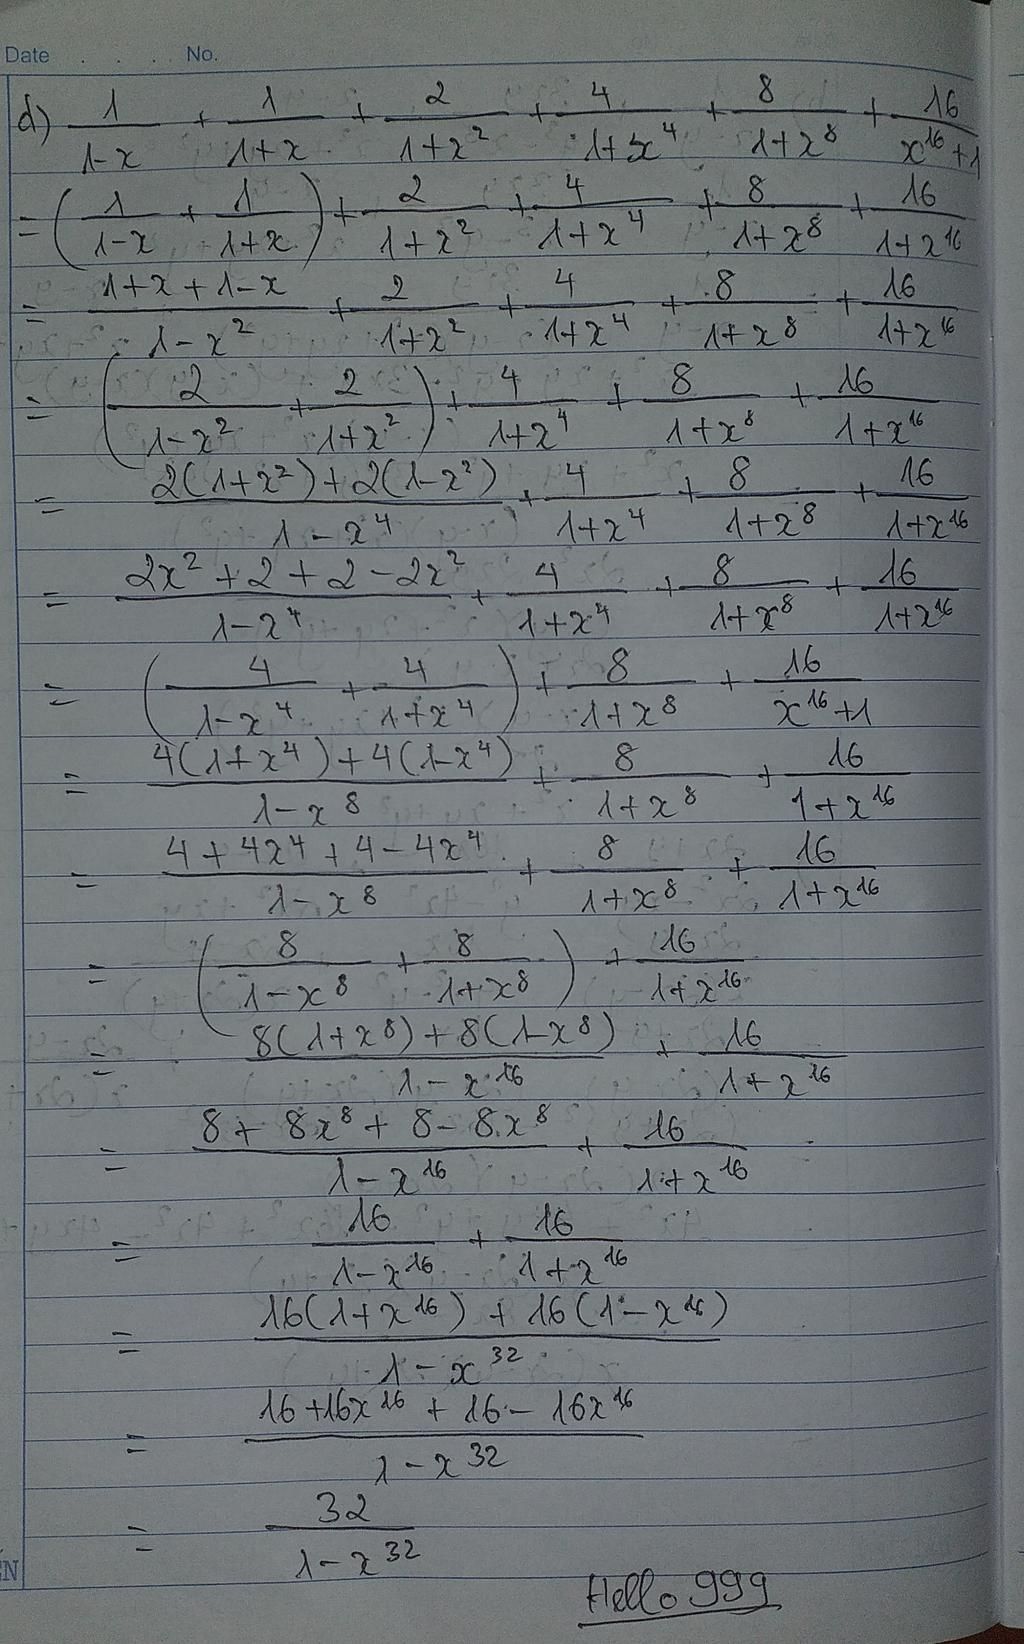 Date . . . . No.
d) 1/(1-x) + 1/(1+x) + 2/(1+x²) + 4/(1+x⁴) + 8/(1+x⁸) + 16/(x¹⁶+1)
= (1/(1-x) + 1/(1+x)) + 2/(1+x²) + 4/(1+x⁴) + 8/(1+x⁸) + 16/(1+x¹⁶)
= (1+x+1-x)/(1-x²) + 2/(1+x²) + 4/(1+x⁴) + 8/(1+x⁸) + 16/(1+x¹⁶)
= (2/(1-x²) + 2/(1+x²)) + 4/(1+x⁴) + 8/(1+x⁸) + 16/(1+x¹⁶)
= (2(1+x²)+2(1-x²))/(1-x⁴) + 4/(1+x⁴) + 8/(1+x⁸) + 16/(1+x¹⁶)
= (2x²+2+2-2x²)/(1-x⁴) + 4/(1+x⁴) + 8/(1+x⁸) + 16/(1+x¹⁶)
= (4/(1-x⁴) + 4/(1+x⁴)) + 8/(1+x⁸) + 16/(x¹⁶+1)
= (4(1+x⁴)+4(1-x⁴))/(1-x⁸) + 8/(1+x⁸) + 16/(1+x¹⁶)
= (4+4x⁴+4-4x⁴)/(1-x⁸) + 8/(1+x⁸) + 16/(1+x¹⁶)
= (8/(1-x⁸) + 8/(1+x⁸)) + 16/(1+x¹⁶)
= (8(1+x⁸)+8(1-x⁸))/(1-x¹⁶) + 16/(1+x¹⁶)
= (8+8x⁸+8-8x⁸)/(1-x¹⁶) + 16/(1+x¹⁶)
= 16/(1-x¹⁶) + 16/(1+x¹⁶)
= (16(1+x¹⁶)+16(1-x¹⁶))/(1-x³²)
= (16+16x¹⁶+16-16x¹⁶)/(1-x³²)
= 32/(1-x³²)
Hello 999